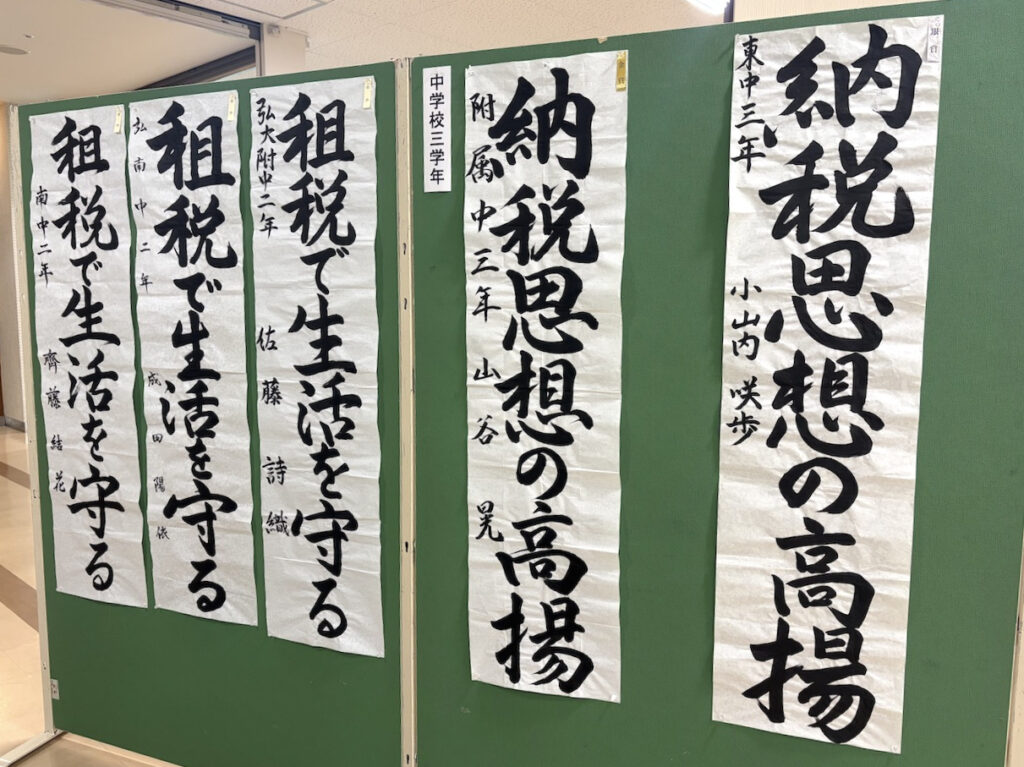 銀賞
納税思想の高揚
東中三年 小山内 咲歩
納税思想の高揚
附属中三年 山谷 晃
中学校三学年
租税で生活を守る
弘大附中二年 佐藤 詩織
租税で生活を守る
弘南中二年 成田 陽依
租税で生活を守る
南中二年 齊藤 結花